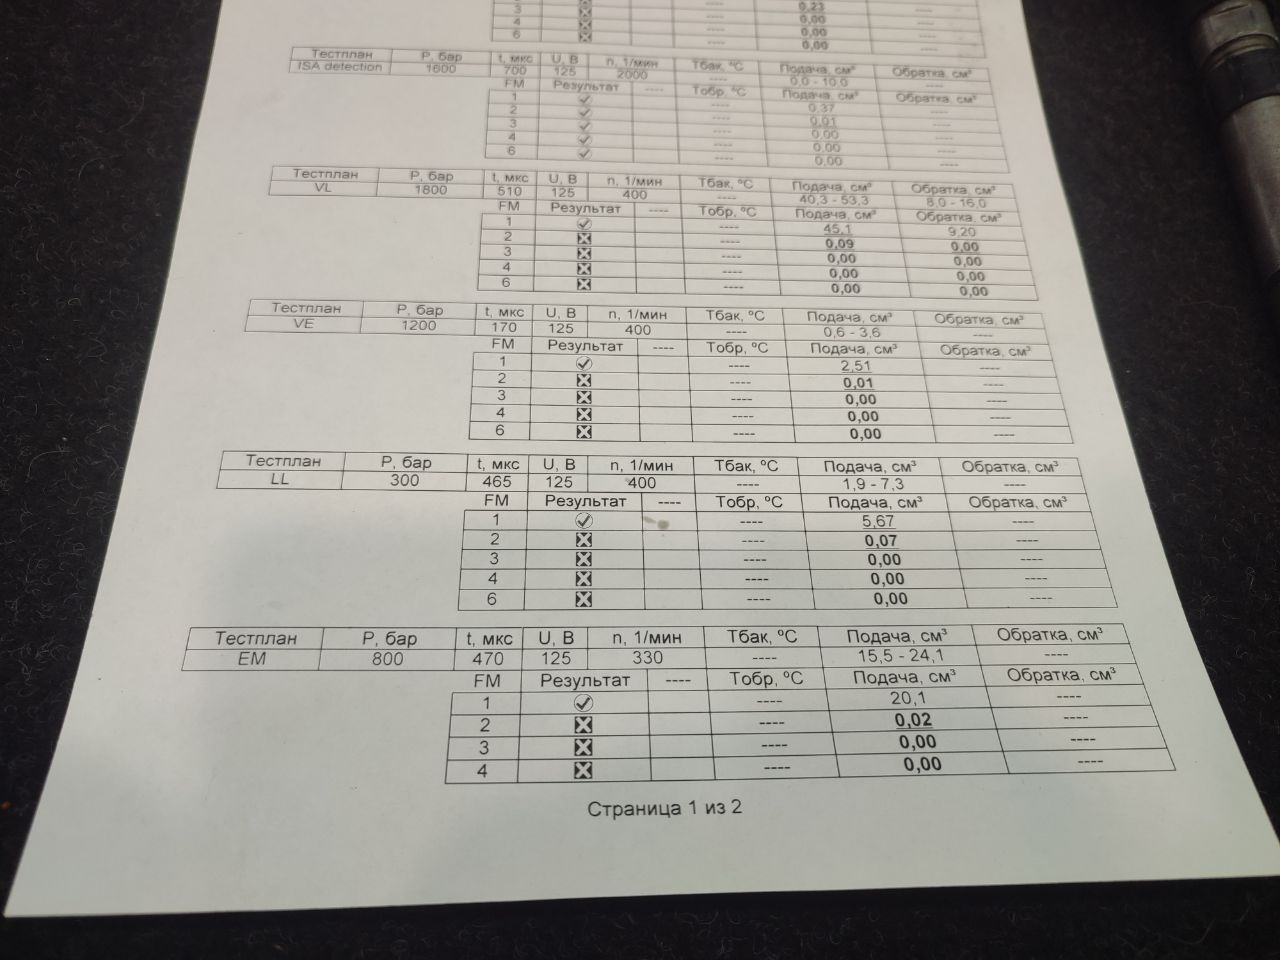 3 ---- 0,23
4 ---- 0,00
6 ---- 0,00
---- 0,00
Тестплан P, бар t, мкс U, В n, 1/мин Тбак, ºС Подача, см³ Обратка, см³
ISA detection 1600 700 125 2000 ---- 0,0 - 10,0 ----
FM Результат ---- Тобр, ºС Подача, см³ Обратка, см³
1 ---- 0,37 ----
2 ---- 0,01 ----
3 ---- 0,00 ----
4 ---- 0,00 ----
6 ---- 0,00 ----
Тестплан P, бар t, мкс U, В n, 1/мин Тбак, ºС Подача, см³ Обратка, см³
VL 1800 510 125 400 ---- 40,3 - 53,3 8,0 - 16,0
FM Результат ---- Тобр, ºС Подача, см³ Обратка, см³
1 ---- 45,1 9,20
2 ---- 0,09 0,00
3 ---- 0,00 0,00
4 ---- 0,00 0,00
6 ---- 0,00 0,00
Тестплан P, бар t, мкс U, В n, 1/мин Тбак, ºС Подача, см³ Обратка, см³
VE 1200 170 125 400 ---- 0,6 - 3,6 ----
FM Результат ---- Тобр, ºС Подача, см³ Обратка, см³
1 ---- 2,51 ----
2 ---- 0,01 ----
3 ---- 0,00 ----
4 ---- 0,00 ----
6 ---- 0,00 ----
Тестплан P, бар t, мкс U, В n, 1/мин Тбак, ºС Подача, см³ Обратка, см³
LL 300 465 125 400 ---- 1,9 - 7,3 ----
FM Результат ---- Тобр, ºС Подача, см³ Обратка, см³
1 ---- 5,67 ----
2 ---- 0,07 ----
3 ---- 0,00 ----
4 ---- 0,00 ----
6 ---- 0,00 ----
Тестплан P, бар t, мкс U, В n, 1/мин Тбак, ºС Подача, см³ Обратка, см³
EM 800 470 125 330 ---- 15,5 - 24,1 ----
FM Результат ---- Тобр, ºС Подача, см³ Обратка, см³
1 ---- 20,1 ----
2 ---- 0,02 ----
3 ---- 0,00 ----
4 ---- 0,00 ----
Страница 1 из 2